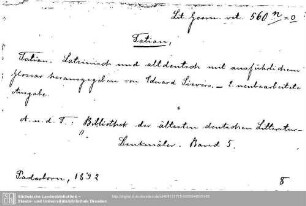 Lit. Germ. vet. 560 n = 0
Tatian,
Tatian. Lateinisch und altdeutsch mit ausführlichem
Glossar herausgegeben von Eduard Sievers. – 2. neubearbeitete
Ausgabe.
A. u. d. T.: Bibliothek der ältesten deutschen Litteratur-
Denkmäler. Band 5.
Paderborn, 1892
8